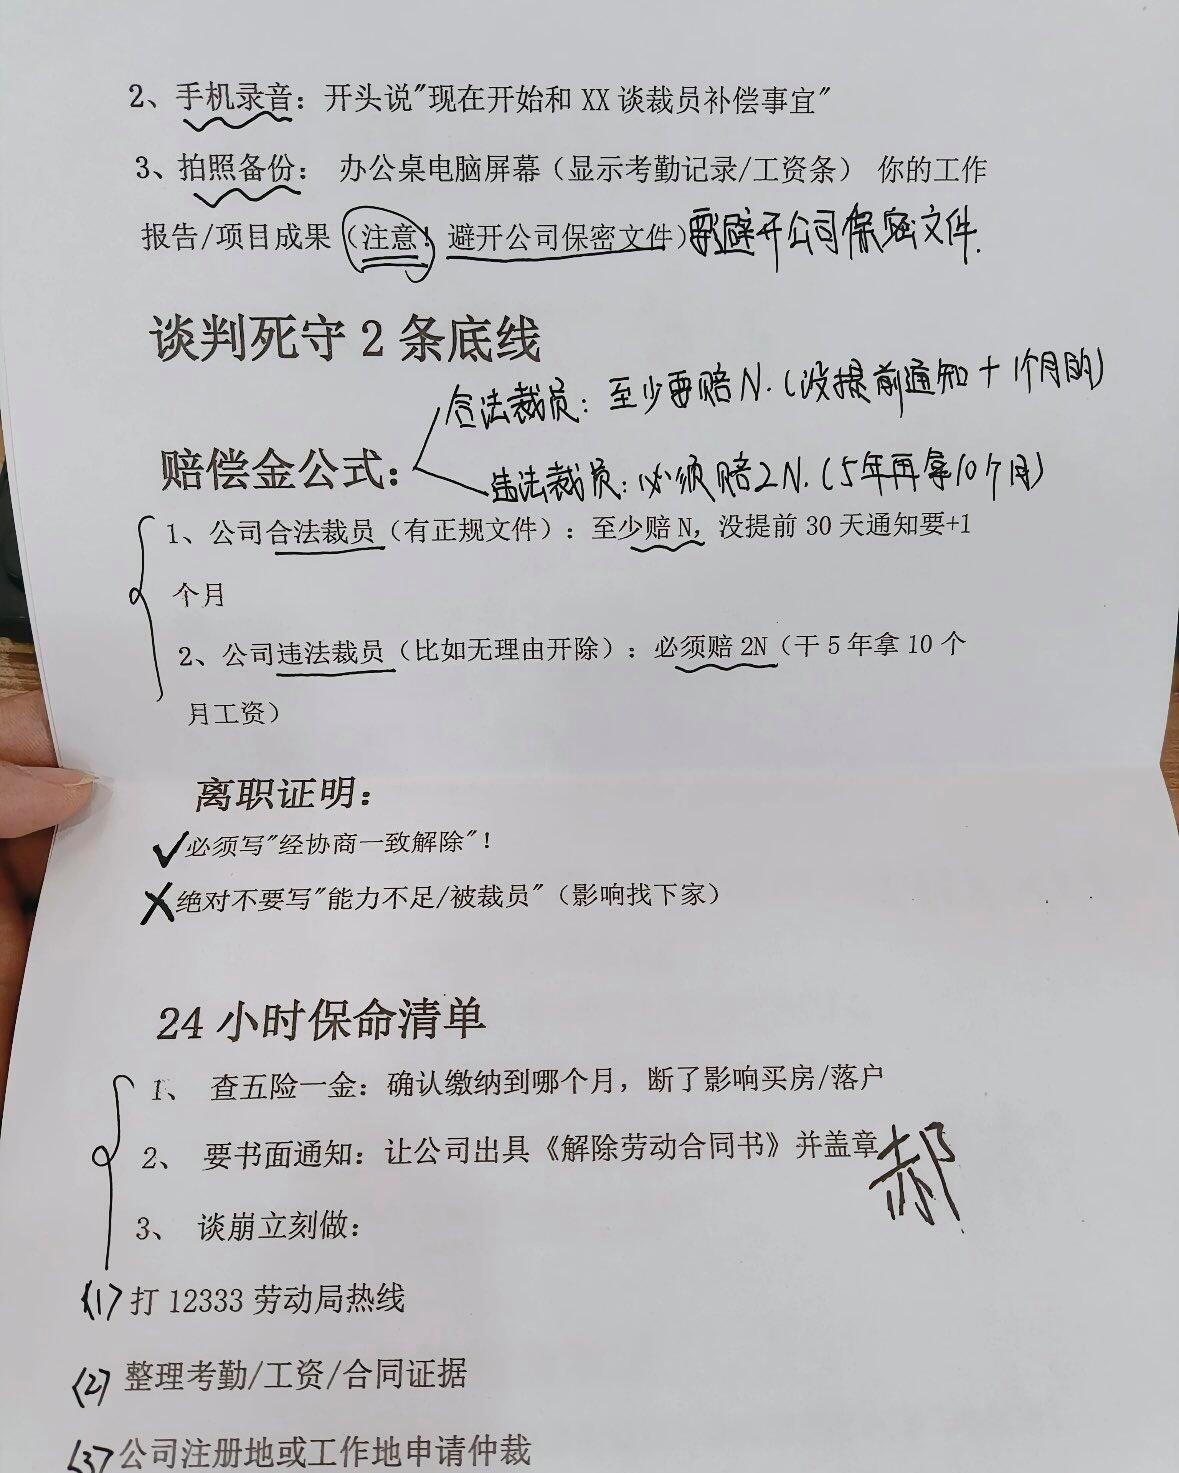 2、手机录音：开头说"现在开始和 XX 谈裁员补偿事宜"
3、拍照备份： 办公桌电脑屏幕（显示考勤记录/工资条） 你的工作
报告/项目成果（注意！避开公司保密文件）要避开公司保密文件.
谈判死守 2 条底线
合法裁员：至少要赔N.（没提前通知+1个月的）
赔偿金公式：
违法裁员：必须赔2N.（5年再拿10个月）
1、公司合法裁员（有正规文件）：至少赔 N，没提前 30 天通知要+1
个月
2、公司违法裁员（比如无理由开除）：必须赔 2N（干 5 年拿 10 个
月工资）
离职证明：
✓必须写"经协商一致解除"！
✗绝对不要写"能力不足/被裁员"（影响找下家）
24 小时保命清单
1、 查五险一金：确认缴纳到哪个月，断了影响买房/落户
2、 要书面通知：让公司出具《解除劳动合同书》并盖章
郝
3、 谈崩立刻做：
(1) 打 12333 劳动局热线
(2) 整理考勤/工资/合同证据
(3) 公司注册地或工作地申请仲裁